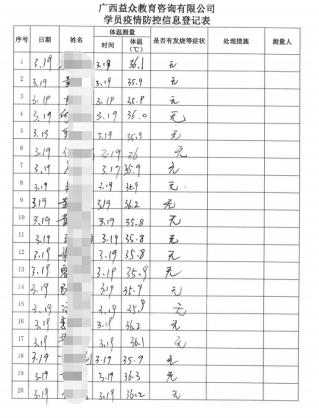 广西益众教育咨询有限公司
学员疫情防控信息登记表
序号 日期 姓名 体温测量 是否有发烧等症状 处理措施 测量人
时间 体温(℃)
1 3.19 3.19 36.1 无
2 3.19 3.19 35.9 无
3 3.19 3.19 35.8 无
4 3.19 3.19 36.0 无
5 3.19 3.19 35.9 无
6 3.19 3.19 36 无
7 3.19 3.19 35.9 无
8 3.19 3.19 35.9 无
9 3.19 3.19 36.2 无
10 3.19 3.19 35.8 无
11 3.19 3.19 35.8 无
12 3.19 3.19 35.8 无
13 3.19 3.19 35.9 无
14 3.19 3.19 35.9 无
15 3.19 3.19 35.8 无
16 3.19 3.19 36.2 无
17 3.19 3.19 36.1 无
18 3.19 3.19 35.9 无
19 3.19 3.19 36.3 无
20 3.19 3.19 36.2 无